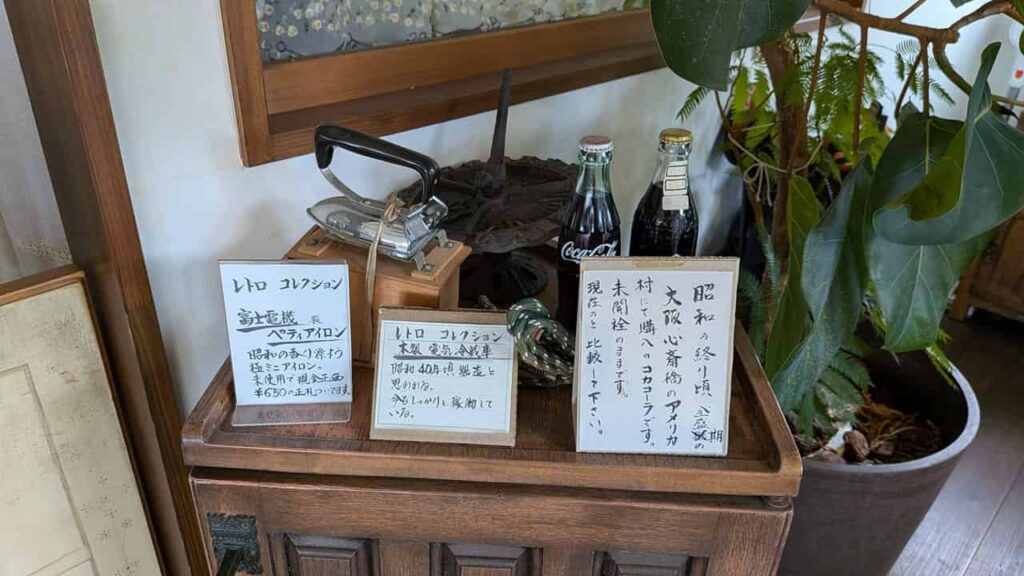 レトロ コレクション
富士電機 製
ベティアイロン
昭和の香り漂よう
極ミニアイロン。
未使用で現金正価
¥650の正札ついてます。
レトロ コレクション
木製 電気冷蔵庫
昭和40年頃 製造と
思われる。
今もしっかりと稼働して
いる。
昭和の終り頃 全盛期の
大阪心斎橋のアメリカ
村にて購入のコカコーラです。
未開栓のままです。
現在のと比較して下さい。
Coca-Cola